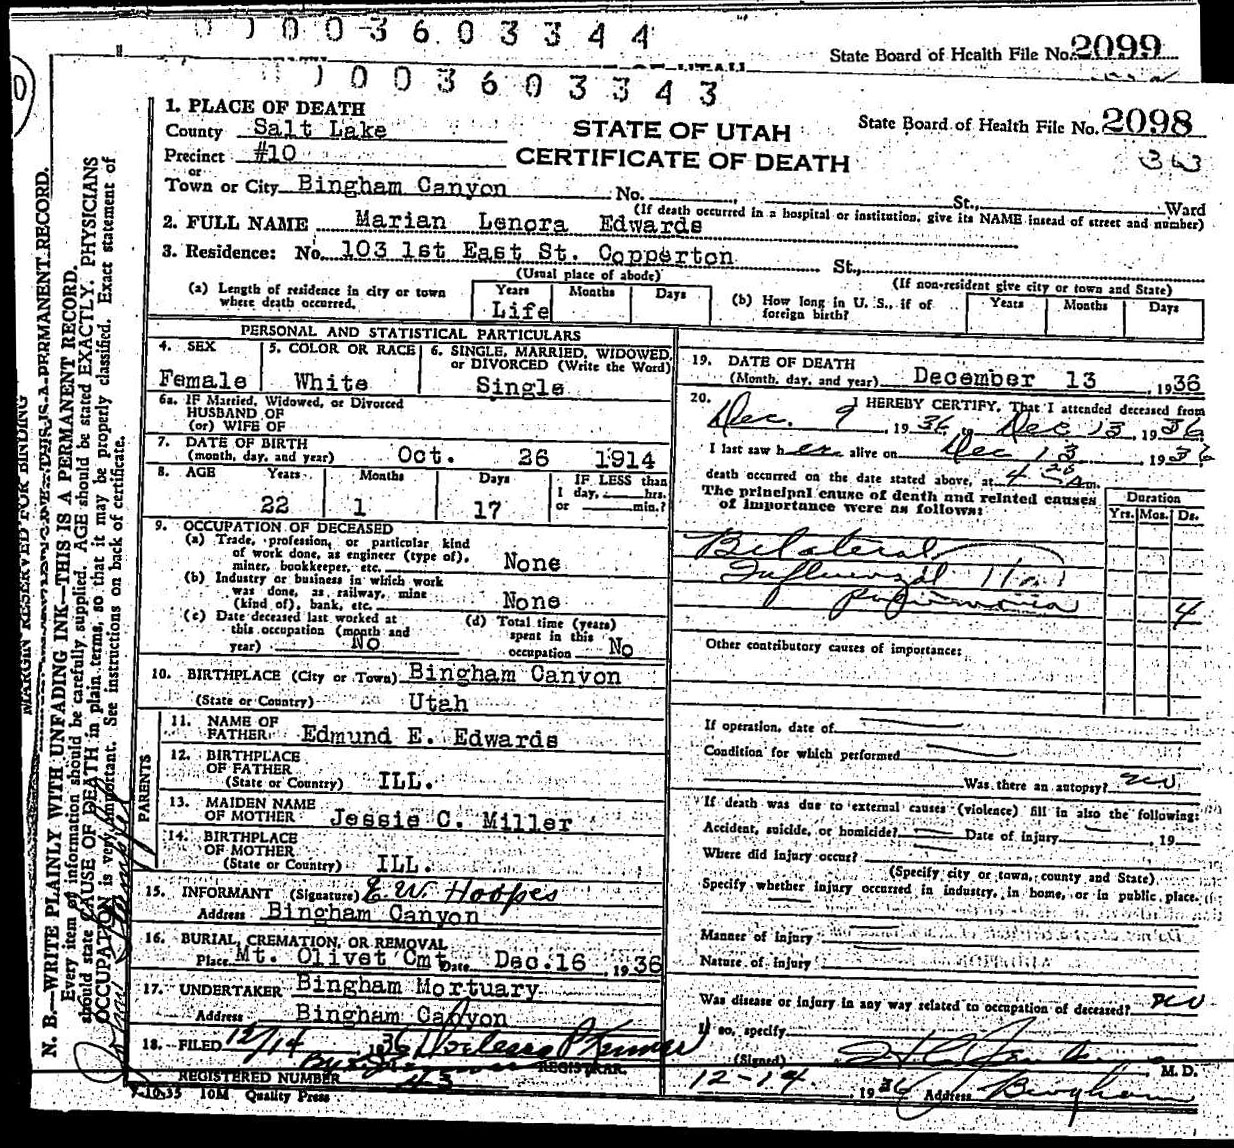 0 0 0 3 6 0 3 3 4 4
State Board of Health File No. 2099
0 0 3 6 0 3 3 4 3
State Board of Health File No. 2098
STATE OF UTAH
CERTIFICATE OF DEATH
1. PLACE OF DEATH
County Salt Lake
Precinct #10
or
Town or City Bingham Canyon No. St., Ward
(If death occurred in a hospital or institution, give its NAME insead of street and number)
2. FULL NAME Marian Lenora Edwards
3. Residence: No. 103 1st East St. Copperton St.,
(Usual place of abode) (If non-resident give city or town and State)
(a) Length of residence in city or town where death occurred. Years Life Months Days
(b) How long in U. S., if of foreign birth? Years Months Days
PERSONAL AND STATISTICAL PARTICULARS
4. SEX Female
5. COLOR OR RACE White
6. SINGLE, MARRIED, WIDOWED, or DIVORCED (Write the Word) Single
6a. IF Married, Widowed, or Divorced
HUSBAND OF
(or) WIFE OF
7. DATE OF BIRTH
(month, day, and year) Oct. 26 1914
8. AGE Years 22 Months 1 Days 17 IF LESS than
1 day, hrs.
or min.?
9. OCCUPATION OF DECEASED
(a) Trade, profession, or particular kind
of work done, as engineer (type of),
miner, bookkeeper, etc. None
(b) Industry or business in which work
was done, as railway, mine
(kind of), bank, etc. None
(c) Date deceased last worked at
this occupation (month and
year) No
(d) Total time (years)
spent in this
occupation No
10. BIRTHPLACE (City or Town) Bingham Canyon
(State or Country) Utah
PARENTS
11. NAME OF
FATHER Edmund E. Edwards
12. BIRTHPLACE
OF FATHER
(State or Country) ILL.
13. MAIDEN NAME
OF MOTHER Jessie C. Miller
14. BIRTHPLACE
OF MOTHER
(State or Country) ILL.
15. INFORMANT (Signature) E. W. Hoopes
Address Bingham Canyon
16. BURIAL, CREMATION, OR REMOVAL
Place Mt. Olivet Cmt. Date Dec. 16, 1936
17. UNDERTAKER Bingham Mortuary
Address Bingham Canyon
18. FILED 12/14 1936
REGISTRAR.
REGISTERED NUMBER 43
7-10-35 10M Quality Press
19. DATE OF DEATH
(Month, day, and year) December 13, 1936
20. I HEREBY CERTIFY, That I attended deceased from
Dec. 9, 1936 to Dec 13, 1936
I last saw her alive on Dec 13 1936
death occurred on the date stated above, at 4 A m.
The principal cause of death and related causes
of importance were as follows:
Duration
Yrs. Mos. Ds.
Bilateral
Influenzal
pneumonia 4
Other contributory causes of importance:
If operation, date of
Condition for which performed
Was there an autopsy? no
If death was due to external causes (violence) fill in also the following:
Accident, suicide, or homicide? Date of injury 19
Where did injury occur?
(Specify city or town, county and State)
Specify whether injury occurred in industry, in home, or in public place.
Manner of injury
Nature of injury
Was disease or injury in any way related to occupation of deceased? no
If so, specify
(Signed) M. D.
12-14, 1936 Address Bingham
MARGIN RESERVED FOR BINDING
N. B.—WRITE PLAINLY WITH UNFADING INK—THIS IS A PERMANENT RECORD.
Every item of information should be carefully supplied. AGE should be stated EXACTLY. PHYSICIANS
should state CAUSE OF DEATH in plain terms, so that it may be properly classified. Exact statement of
OCCUPATION is very important. See instructions on back of certificate.